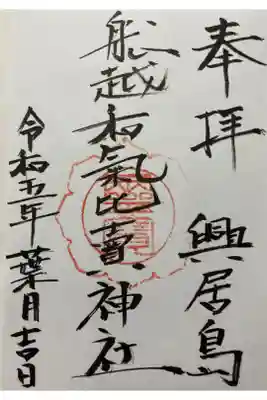 奉拝 興居島
船越和氣比賣神社
令和五年 葉月吉日